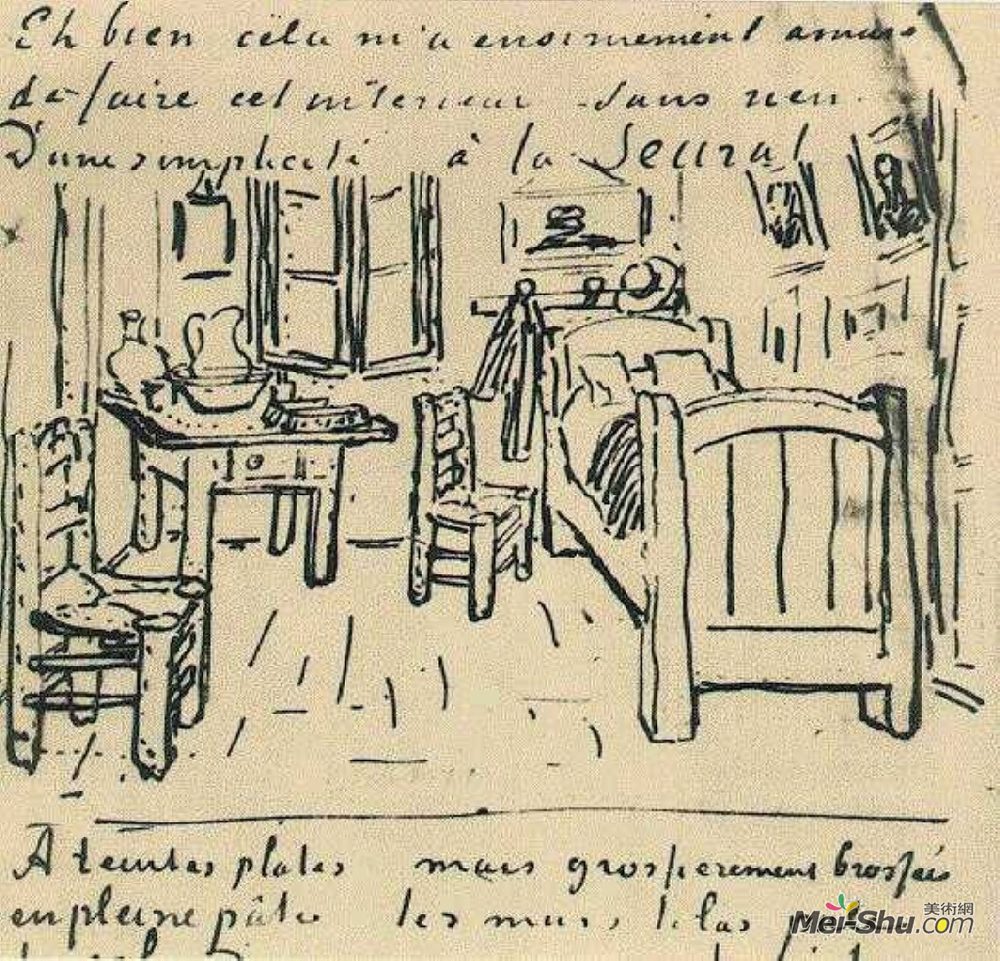 Eh bien cela m'a enormement amusé
de faire cet interieur sans rien
D'une simplicité à la Seurat
A teintes plates mais grossierement brossées
en pleine pâte les murs lilas
美術網
Mei-Shu.com